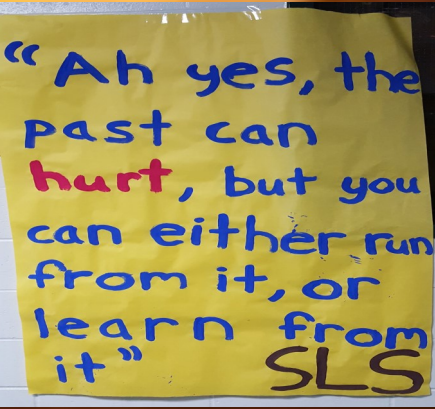 “Ah yes, the
past can
hurt, but you
can either run
from it, or
learn from
it”
SLS